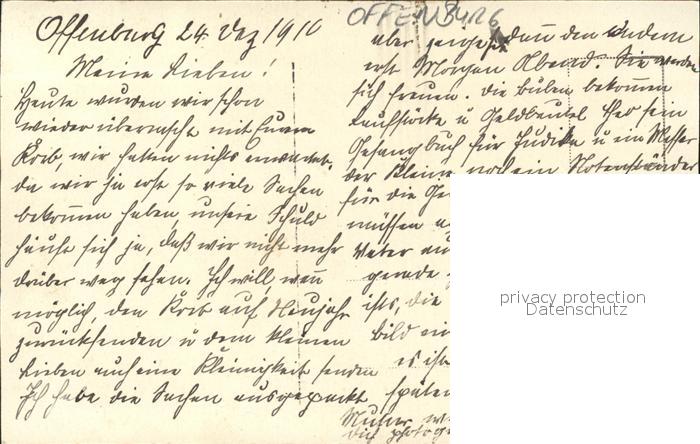 OFFENBURG
Offenburg 24 Dez 1910
Meine Lieben!
Heute wurden wir schon
wieder überrascht mit Eurem
Korb, wir hatten nichts erwartet,
da wir ja erst so viele Sachen
bekommen haben, unsere Schuld
häuft sich ja, daß wir nicht mehr
drüber weg sehen. Ich will, wenn
möglich, den Korb auf Neujahr
zurücksenden u dem kleinen
Lieben auch eine Kleinigkeit senden
Ich habe die Sachen ausgepackt
aber zeige dann den andern
erst Morgen Abend. Sie werden
sich freuen. Die Buben bekommen
u Geldbeutel sein
Gesangbuch für u ein Messer
der Kleine noch ein Notenständer
für die
müssen
Vater
gerade
ists, die
bild
es ist
später
Mutter
die
privacy protection
Datenschutz